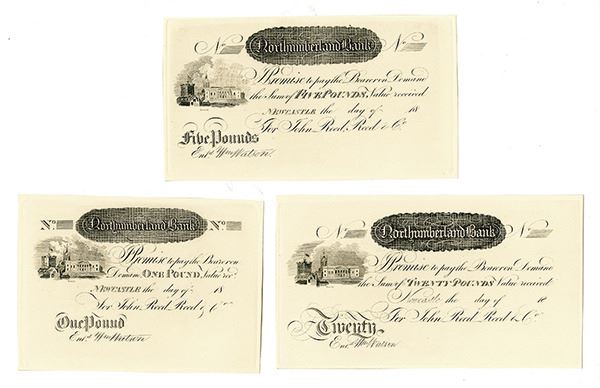 No Northumberland Bank No
I Promise to pay the Bearer on Demand
the Sum of FIVE POUNDS, Value received
NEWCASTLE the day of 18
For John Reed, Reed & Co.
Five Pounds
Entd. Wm Watson.
No Northumberland Bank No
I Promise to pay the Bearer on
Demand ONE POUND, Value recd.
NEWCASTLE the day of 18
For John Reed, Reed & Co.
One Pound
Entd. Wm Watson
No Northumberland Bank No
I Promise to pay the Bearer on Demand
the Sum of TWENTY POUNDS Value received
Newcastle the day of 18
For John Reed, Reed & Co.
Twenty
Entd. Wm Watson